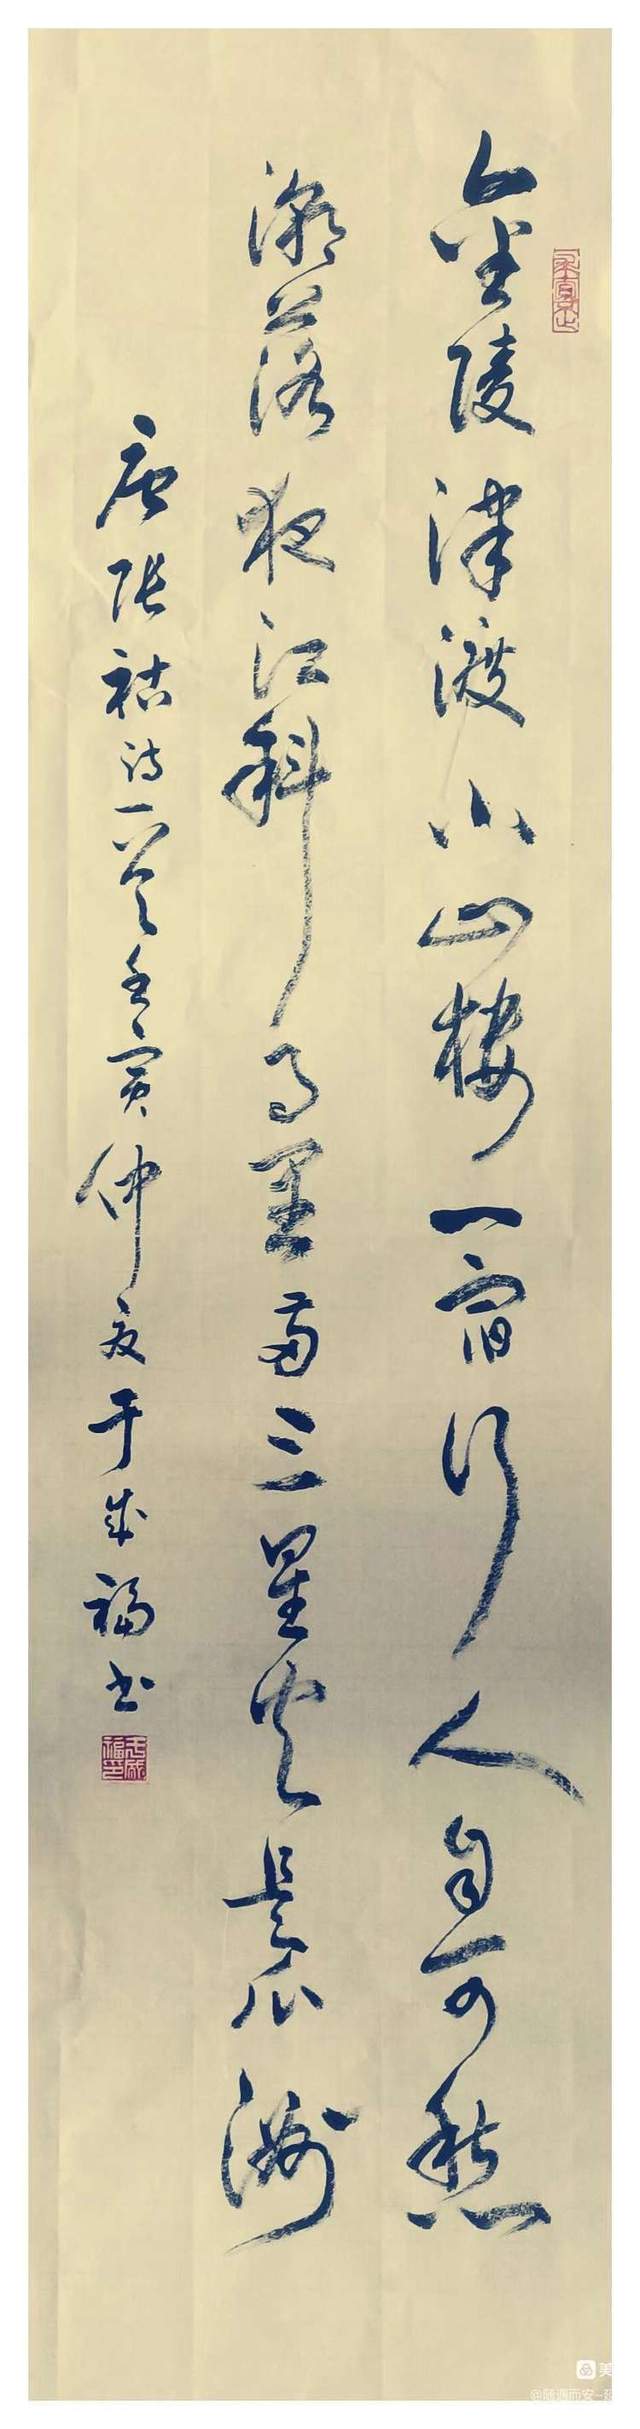 金陵津渡小山楼一宿行人自可愁
潮落夜江斜月里两三星火是瓜洲
唐张祜诗一首壬寅仲夏于成福书